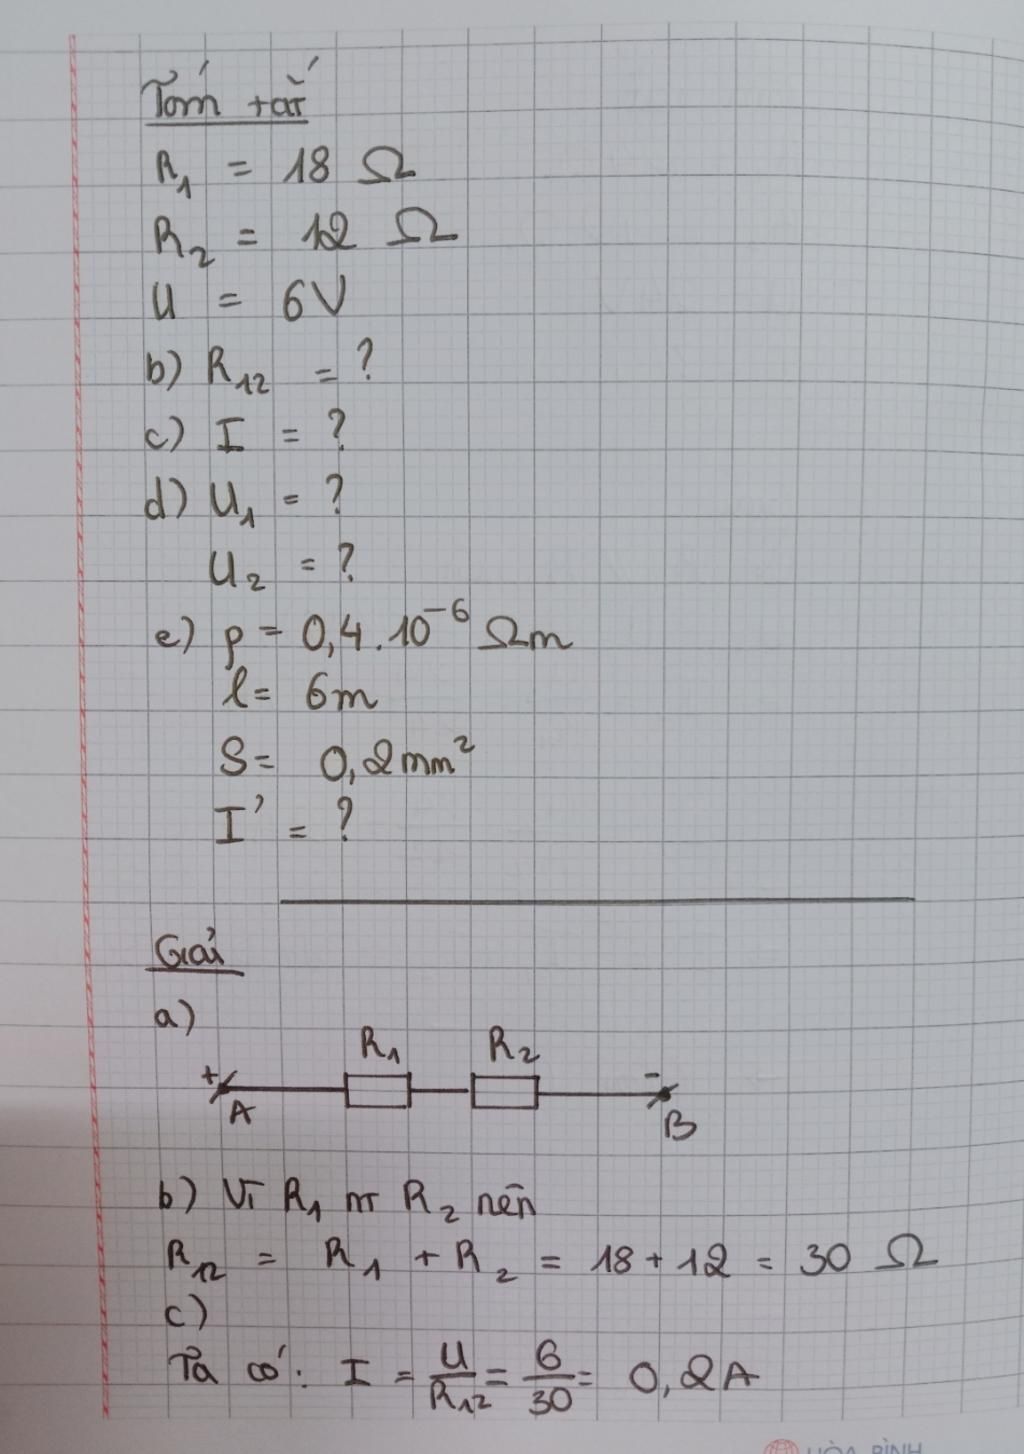 Tóm tắt
R₁ = 18 Ω
R₂ = 12 Ω
U = 6V
b) R₁₂ = ?
c) I = ?
d) U₁ = ?
U₂ = ?
e) ρ = 0,4.10⁻⁶ Ωm
l = 6m
S = 0,2mm²
I' = ?
Giải
a)
R₁ R₂
+ -
A B
b) Vì R₁ nt R₂ nên
R₁₂ = R₁ + R₂ = 18 + 12 = 30 Ω
c)
Ta có: I = U/R₁₂ = 6/30 = 0,2A
HÒA BÌNH